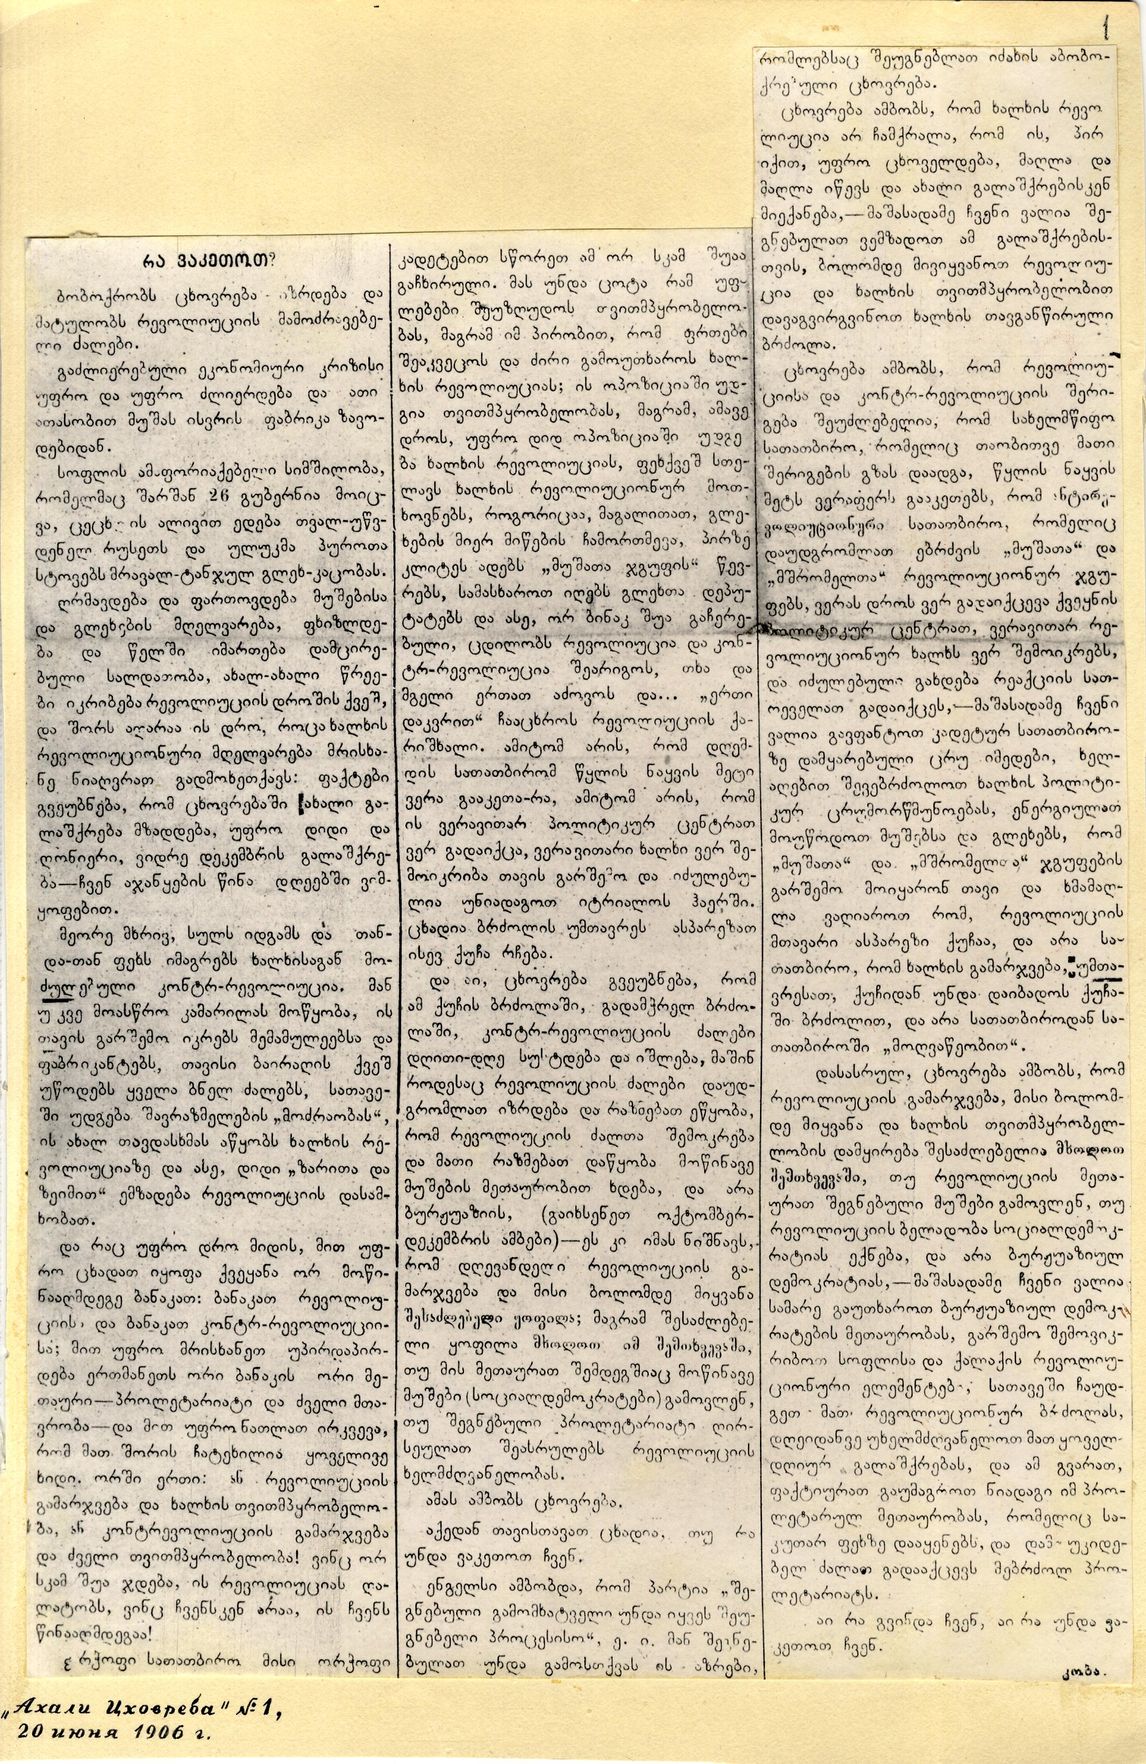 1
რა ვაკეთოთ?
ბობოქრობს ცხოვრება იზრდება და
მატულობს რევოლიუციის მამოძრავებე-
ლი ძალები.
გაძლიერებული ეკონომიური კრიზისი
უფრო და უფრო ძლიერდება და ათი
ათასობით მუშას ისვრის ფაბრიკა ზავო-
დებიდან.
სოფლის ამაფორიაქებელი სიმშილობა,
რომელმაც შარშან 26 გუბერნია მოიც-
ვა, ცეცხლის ალივით ედება თვალ-უწვ-
დენელ რუსეთს და ულუკმა პუროთა
სტოვებს მრავალ-ტანჯულ გლეხ-კაცობას.
ღრმავდება და ფართოვდება მუშებისა
და გლეხების მღელვარება, ფხიზლდე-
ბა და წელში იმართება დამცირე-
ბული სალდათობა, ახალ-ახალი წრეე-
ბი იკრიბება რევოლიუციის დროშის ქვეშ,
და შორს აღარაა ის დრო, როცა ხალხის
რევოლიუციონური მღელვარება მრისხა-
ნე ნიაღვრათ გადმოხეთქავს: ფაქტები
გვეუბნება, რომ ცხოვრებაში ახალი გა-
ლაშქრება მზადდება, უფრო დიდი და
ღონიერი, ვიდრე დეკემბრის გალაშქრე-
ბა—ჩვენ აჯანყების წინა დღეებში ვიმ-
ყოფებით.
მეორე მხრივ, სულს იდგამს და თან-
და-თან ფეხს იმაგრებს ხალხისაგან მო-
ძულებული კონტრ-რევოლიუცია. მან
უკვე მოასწრო კამარილას მოწყობა, ის
თავის გარშემო იკრებს მემამულეებსა და
ფაბრიკანტებს, თავისი ბაირაღის ქვეშ
უწოდებს ყველა ბნელ ძალებს, სათავე-
ში უდგება შავრაზმელების „მოძრაობას“,
ის ახალ თავდასხმას აწყობს ხალხის რე-
ვოლიუციაზე და ასე, დიდი „ზარითა და
ზეიმით“ ემზადება რევოლიუციის დასამ-
ხობათ.
და რაც უფრო დრო მიდის, მით უფ-
რო ცხადათ იყოფა ქვეყანა ორ მოწი-
ნააღმდეგე ბანაკათ: ბანაკათ რევოლიუ-
ციის და ბანაკათ კონტრ-რევოლიუციი-
სა; მით უფრო მრისხანეთ უპირდაპირ-
დება ერთმანეთს ორი ბანაკის ორი მე-
თაური—პროლეტარიატი და ძველი მთა-
ვრობა—და მით უფრო ნათლათ ირკვევა,
რომ მათ შორის ჩატეხილია ყოველივე
ხიდი. ორში ერთი: ან რევოლიუციის
გამარჯვება და ხალხის თვითმპყრობელო-
ბა, ან კონტრევოლიუციის გამარჯვება
და ძველი თვითმპყრობელობა! ვინც ორ
სკამ შუა ჯდება, ის რევოლიუციას ღა-
ლატობს, ვინც ჩვენსკენ არაა, ის ჩვენს
წინააღმდეგაა!
ერჭოფი სათათბირო მისი ორჭოფი
კადეტებით სწორეთ ამ ორ სკამ შუაა
გაჩხირული. მას უნდა ცოტა რამ უფ-
ლებები შეუზღუდოს თვითმპყრობელო-
ბას, მაგრამ იმ პირობით, რომ ფრთები
შეაკვეცოს და ძირი გამოუთხაროს ხალ-
ხის რევოლიუციას; ის ოპოზიციაში უდ-
გია თვითმპყრობელობას, მაგრამ, ამავე
დროს, უფრო დიდ ოპოზიციაში უდგე
ბა ხალხის რევოლიუციას, ფეხქვეშ სთე-
ლავს ხალხის რევოლიუციონურ მოთ-
ხოვნებს, როგორიცაა, მაგალითათ, გლე-
ხების მიერ მიწების ჩამორთმევა, პირზე
კლიტეს ადებს „მუშათა ჯგუფის“ წევ-
რებს, სამასხაროთ იღებს გლეხთა დეპუ-
ტატებს და ასე, ორ ბინაკ შუა გაჩერე-
ბული, ცდილობს რევოლიუცია და კონ-
ტრ-რევოლიუცია შეარიგოს, თხა და
მგელი ერთათ აძოვოს და... „ერთი
დაკვრით“ ჩააცხროს რევოლიუციის ქა-
რიშხალი. ამიტომ არის, რომ დღემ-
დის სათათბირომ წყლის ნაყვის მეტი
ვერა გააკეთა-რა, ამიტომ არის, რომ
ის ვერავითარ პოლიტიკურ ცენტრათ
ვერ გადაიქცა, ვერავითარი ხალხი ვერ შე-
მოიკრიბა თავის გარშემო და იძულებუ-
ლია უნიადაგოთ იტრიალოს ჰაერში.
ცხადია ბრძოლის უმთავრეს ასპარეზათ
ისევ ქუჩა რჩება.
და აი, ცხოვრება გვეუბნება, რომ
ამ ქუჩის ბრძოლაში, გადამჭრელ ბრძო-
ლაში, კონტრ-რევოლიუციის ძალები
დღითი-დღე სუსტდება და იშლება, მაშინ
როდესაც რევოლიუციის ძალები დაუდ-
გრომლათ იზრდება და რაზმებათ ეწყობა,
რომ რევოლიუციის ძალთა შემოკრება
და მათი რაზმებათ დაწყობა მოწინავე
მუშების მეთაურობით ხდება, და არა
ბურჟუაზიის, (გაიხსენეთ ოქტომბერ-
დეკემბრის ამბები)—ეს კი იმას ნიშნავს,
რომ დღევანდელი რევოლიუციის გა-
მარჯვება და მისი ბოლომდე მიყვანა
შესაძლებელი ყოფილა; მაგრამ შესაძლებე-
ლი ყოფილა მხოლოთ იმ შემთხვევაში,
თუ მის მეთაურათ შემდეგშიაც მოწინავე
მუშები (სოციალდემოკრატები) გამოვლენ,
თუ შეგნებული პროლეტარიატი ღირ-
სეულათ შეასრულებს რევოლიუციის
ხელმძღვანელობას.
ამას ამბობს ცხოვრება.
აქედან თავისთავათ ცხადია, თუ რა
უნდა ვაკეთოთ ჩვენ.
ენგელსი ამბობდა, რომ პარტია „შე-
გნებული გამომხატველი უნდა იყვეს შეუ-
გნებელი პროცესისო“, ე. ი. მან შეგნე-
ბულათ უნდა გამოსთქვას ის აზრები,
რომლებსაც შეუგნებლათ იძახის აბობო-
ქრებული ცხოვრება.
ცხოვრება ამბობს, რომ ხალხის რევო
ლიუცია არ ჩამქრალა, რომ ის, პირ
იქით, უფრო ცხოველდება, მაღლა და
მაღლა იწევს და ახალი გალაშქრებისკენ
მიექანება,—მაშასადამე ჩვენი ვალია შე-
გნებულათ ვემზადოთ ამ გალაშქრების-
თვის, ბოლომდე მივიყვანოთ რევოლიუ-
ცია და ხალხის თვითმპყრობელობით
დავაგვირგვინოთ ხალხის თავგანწირული
ბრძოლა.
ცხოვრება ამბობს, რომ რევოლიუ-
ციისა და კონტრ-რევოლიუციის შერი-
გება შეუძლებელია, რომ სახელმწიფო
სათათბირო, რომელიც თაობითვე მათი
შერიგების გზას დაადგა, წყლის ნაყვის
მეტს ვერაფერს გააკეთებს, რომ
ვოლიუციონური სათათბირო, რომელიც
დაუდგრომლათ ებრძვის „მუშათა“ და
„მშრომელთა“ რევოლიუციონურ ჯგუ-
ფებს, ვერას დროს ვერ გადაიქცევა ქვეყნის
პოლიტიკურ ცენტრათ, ვერავითარ რე-
ვოლიუციონურ ხალხს ვერ შემოიკრებს,
და იძულებული გახდება რეაქციის სათ-
რეველათ გადაიქცეს,—მაშასადამე ჩვენი
ვალია გავფანტოთ კადეტურ სათათბირო-
ზე დამყარებული ცრუ იმედები, ხელ-
აღებით შევებრძოლოთ ხალხის პოლიტი-
კურ ცრუმორწმუნოებას, ენერგიულათ
მოუწოდოთ მუშებსა და გლეხებს, რომ
„მუშათა“ და „მშრომელთა“ ჯგუფების
გარშემო მოიყარონ თავი და ხმამაღ-
ლა ვაღიაროთ რომ, რევოლიუციის
მთავარი ასპარეზი ქუჩაა, და არა სა-
თათბირო, რომ ხალხის გამარჯვება, უმთა-
ვრესათ, ქუჩიდან უნდა დაიბადოს ქუჩა-
ში ბრძოლით, და არა სათათბიროდან სა-
თათბიროში „მოღვაწეობით“.
დასასრულ, ცხოვრება ამბობს, რომ
რევოლიუციის გამარჯვება, მისი ბოლომ-
დე მიყვანა და ხალხის თვითმპყრობელ-
ლობის დამყირება შესაძლებელია მხოლოთ
შემთხვევაში, თუ რევოლიუციის მეთა-
ურათ შეგნებული მუშები გამოვლენ, თუ
რევოლიუციის ბელადობა სოციალდემოკ-
რატიას ექნება, და არა ბურჟუაზიულ
დემოკრატიას,—მაშასადამე ჩვენი ვალია
სამარე გაუთხაროთ ბურჟუაზიულ დემოკ-
რატების მეთაურობას, გარშემო შემოვიკ-
რიბოთ სოფლისა და ქალაქის რევოლიუ-
ციონური ელემენტები, სათავეში ჩაუდ-
გეთ მათ რევოლიუციონურ ბრძოლას,
დღეიდანვე უხელმძღვანელოთ მათ ყოველ-
დღიურ გალაშქრებას, და ამ გვარათ,
ფაქტიურათ გაუმაგროთ ნიადაგი იმ პრო-
ლეტარულ მეთაურობას, რომელიც სა-
კუთარ ფეხზე დააყენებს, და დამოუკიდე-
ბელ ძალათ გადააქცევს მებრძოლ პრო-
ლეტარიატს.
აი რა გვინდა ჩვენ, აი რა უნდა ვა-
კეთოთ ჩვენ.
კობა.
„Ахали Цховреба“ № 1,
20 июня 1906 г.